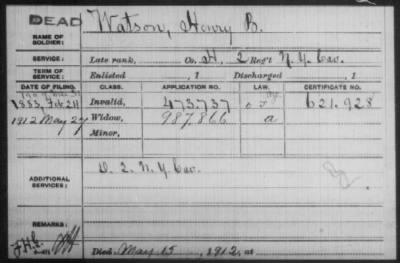 DEAD
Watson, Henry B.
NAME OF SOLDIER:
SERVICE: Late rank, Co. H, 2 Reg't N. Y. Cav.
TERM OF SERVICE: Enlisted , 1 Discharged , 1
DATE OF FILING. CLASS. APPLICATION NO. LAW. CERTIFICATE NO.
1883, Feb 24 Invalid, 473,737 621,928
1912 May 27 Widow, 987,866 a
Minor,
ADDITIONAL SERVICES: D. 2 N. Y. Cav.
REMARKS:
Died May 15, 1912, at